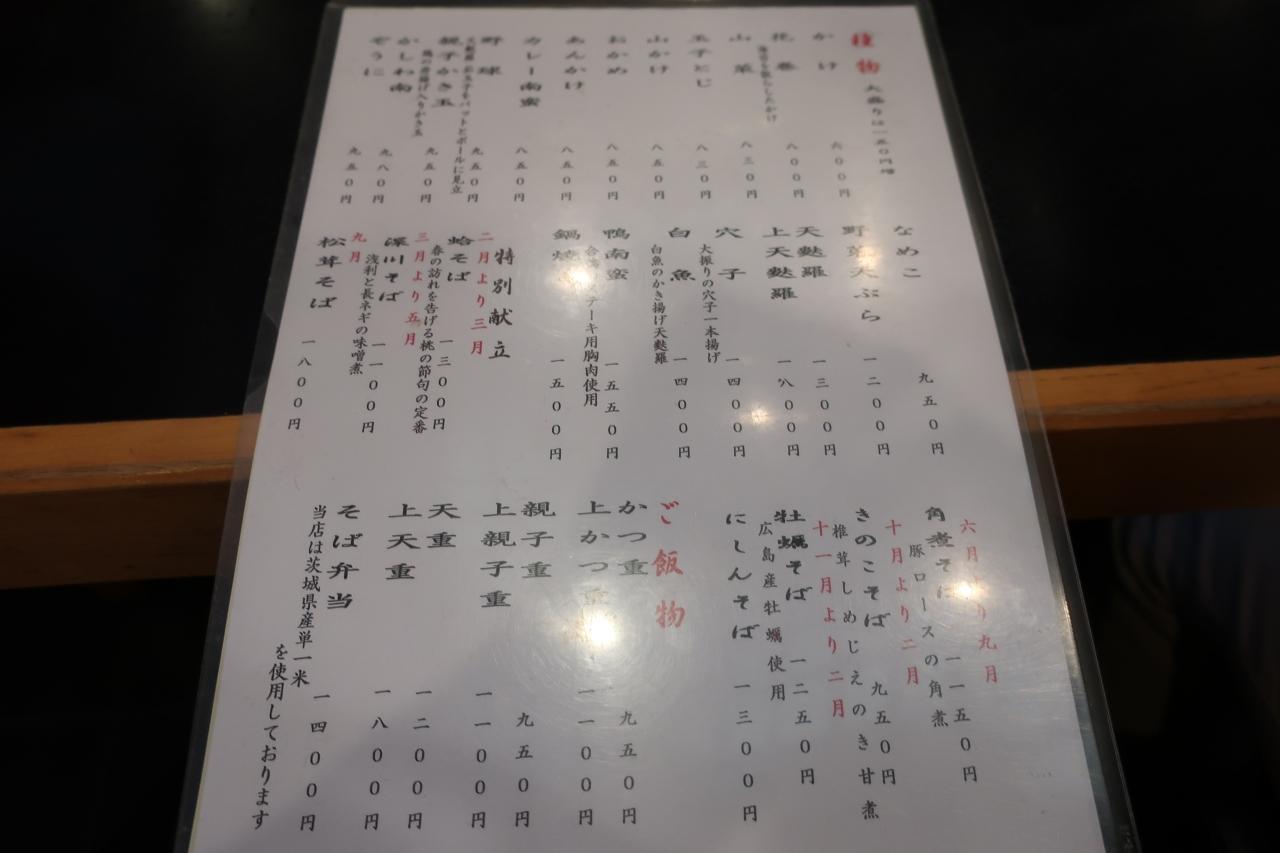 種物 大盛りは一五〇円増
かけ 六〇〇円
花巻 八〇〇円
海苔を散らしたかけ
山菜 八三〇円
玉子とじ 八三〇円
山かけ 八五〇円
おかめ 八五〇円
あんかけ 八五〇円
カレー南蛮 八五〇円
野球 九五〇円
天麩羅と玉子をバットとボールに見立
親子かき玉 九五〇円
鶏の唐揚げ入りかき玉
かしわ南 九八〇円
ぞうに 九五〇円
なめこ 九五〇円
野菜天ぷら 一二〇〇円
天麩羅 一三〇〇円
上天麩羅 一八〇〇円
穴子 一四〇〇円
大振りの穴子一本揚げ
白魚 一四〇〇円
白魚のかき揚げ天麩羅
鴨南蛮 一五五〇円
テーキ用胸肉使用
鍋焼 一五〇〇円
特別献立
二月より三月
蛤そば 一三〇〇円
春の訪れを告げる桃の節句の定番
三月より五月
深川そば 一一〇〇円
浅利と長ネギの味噌煮
九月
松茸そば 一八〇〇円
六月より九月
角煮そば 一一五〇円
豚ロースの角煮
十月より二月
きのこそば 九五〇円
椎茸しめじえのき甘煮
十一月より二月
牡蠣そば 一二五〇円
広島産牡蠣使用
にしんそば 一三〇〇円
ご飯物
かつ重 九五〇円
上かつ重 一一〇〇円
親子重 九五〇円
上親子重 一一〇〇円
天重 一二〇〇円
上天重 一八〇〇円
そば弁当 一四〇〇円
当店は茨城県産単一米
を使用しております